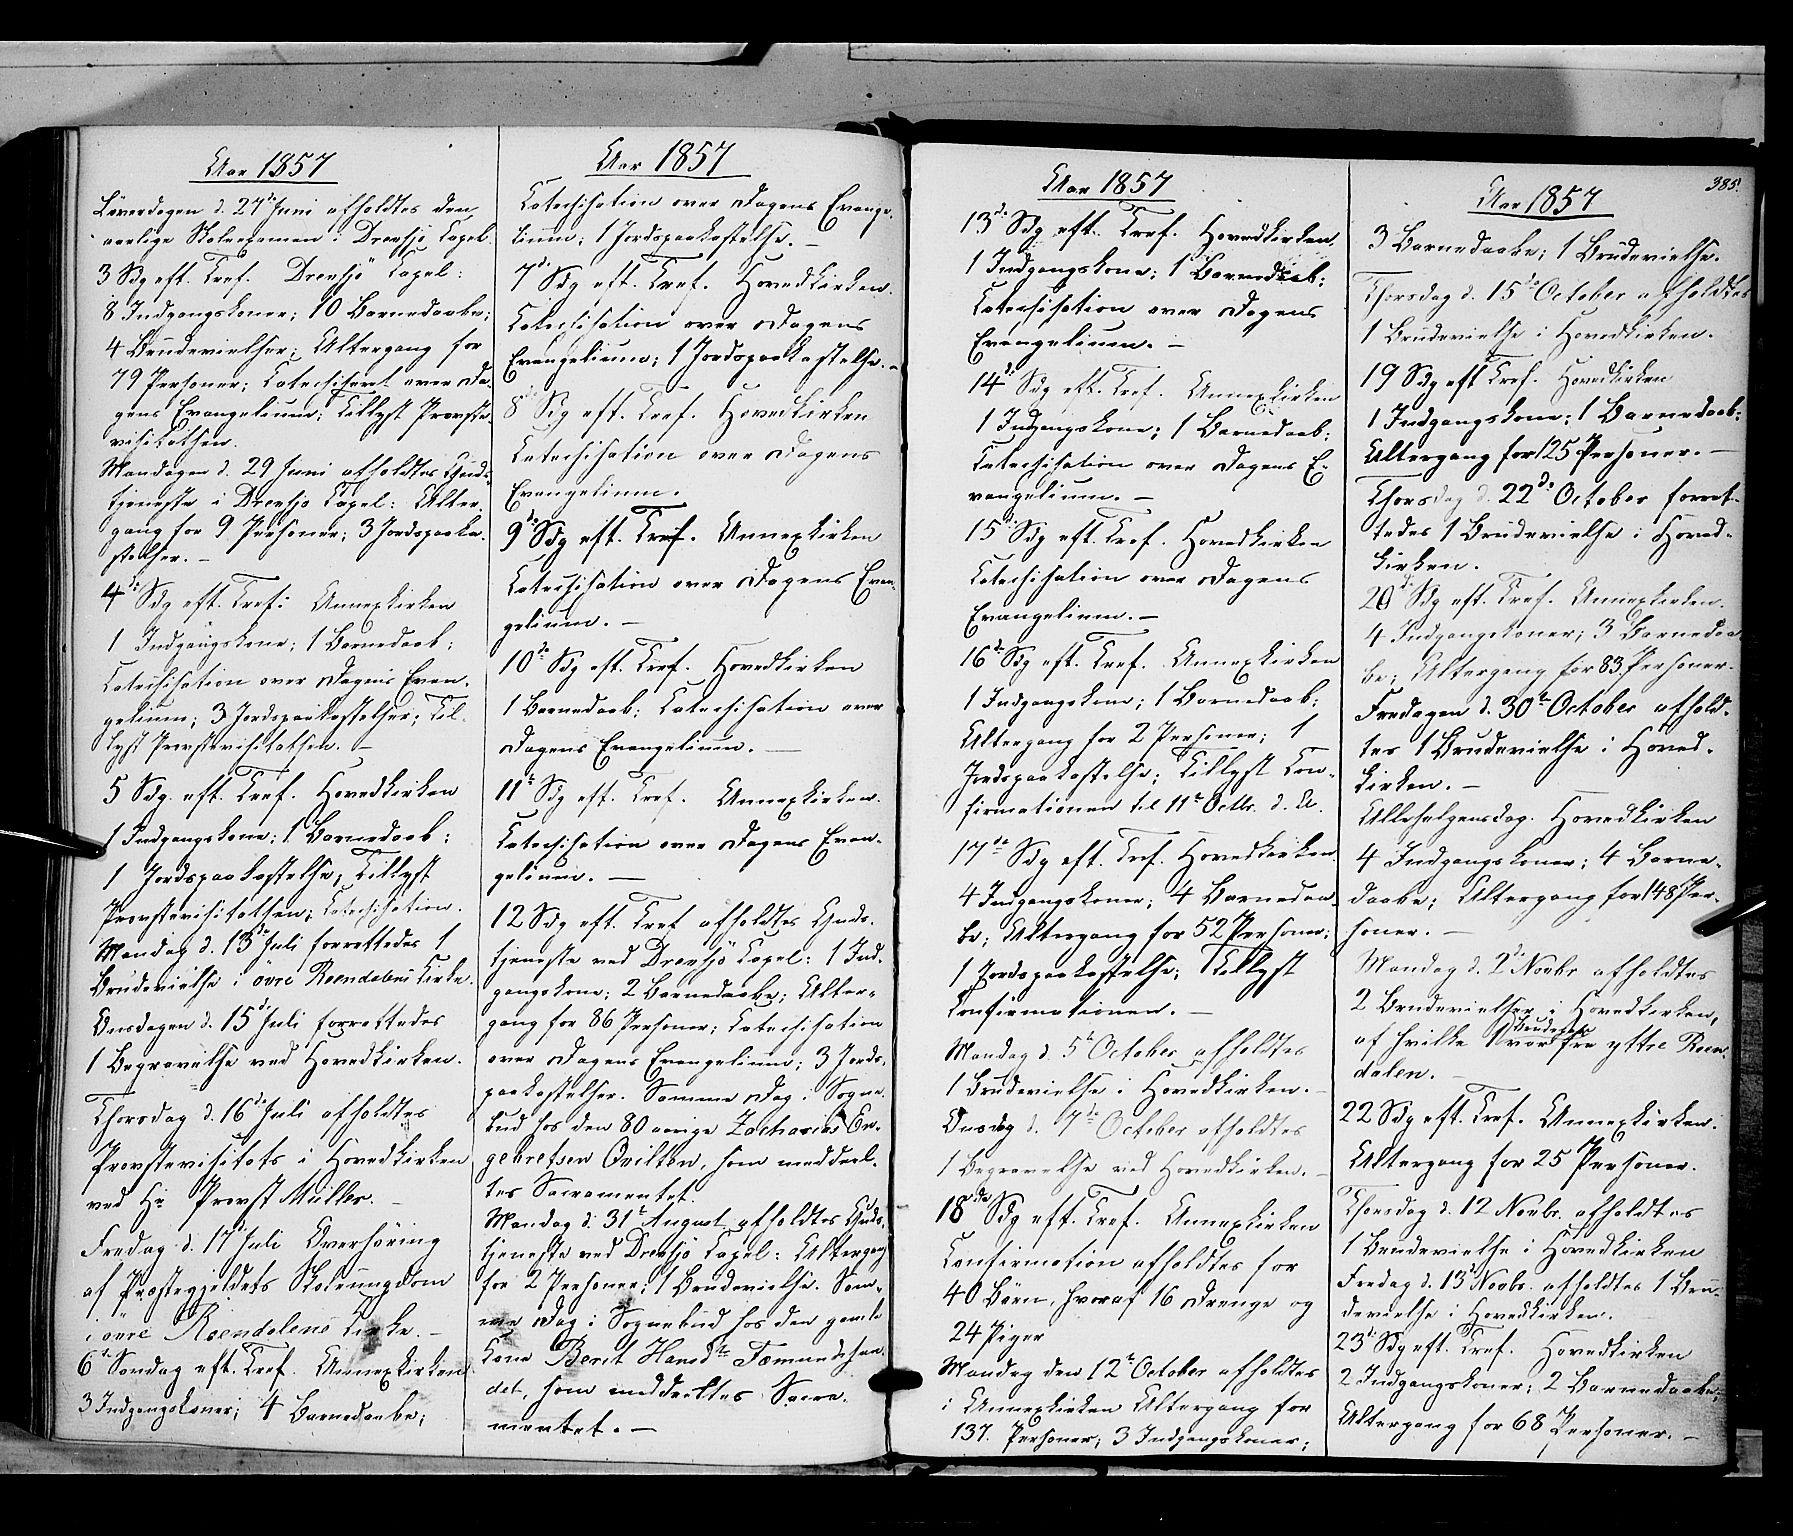 Aar 1857
Löverdagen d. 27de Juni afholdtes den
aarlige Skoleexamen i Drevsjö Capel.
3 Sdg eft. Tref. Drevsjö Capel:
8 Indgangskoner; 10 Barnedaabe;
4 Brudevielser; Altergang for
79 Personer; Catechisert over Da-
gens Evangelium; Tillyst Provste-
visitatsen.
Mandagen d. 29 Juni afholdtes Guds-
tjeneste i Drevsjö Capel: Alter-
gang for 9 Personer; 3 Jordspaaka-
stelser. –
4de Sdg eft. Tref: Annexkirken
1 Indgangskone; 1 Barnedaab;
Catechisation over Dagens Evan-
gelium; 3 Jordspaakastelser; Til-
lyst Provstevisitatsen. –
5 Sdg. eft. Tref. Hovedkirken
1 Indgangskone; 1 Barnedaab;
1 Jordspaakastelse; Tillyst
Provstevisitatsen; Catechisation.
Mandag d. 13de Juli forrettedes 1
Brudevielse i övre Rendalens Kirke.
Onsdagen d. 15de Juli forrettedes
1 Begravelse ved Hovedkirken.
Thorsdag d. 16de Juli afholdtes
Provstevisitats i Hovedkirken
ved Hr Provst Müller. –
Fredag d. 17de Juli Overhöring
af Præstegjeldets Skoleungdom
i övre Rendalens Kirke. –
6te Söndag eft. Tref. Annexkirken
3 Indgangskoner; 4 Barnedaabe;
Aar 1857
Catechisation over Dagens Evange-
lium; 1 Jordspaakastelse. –
7de Sdg eft. Tref. Hovedkirken.
Catechisation over Dagens
Evangelium; 1 Jordspaakastelse. –
8de Sdg eft. Tref. Hovedkirken
Catechisation over Dagens
Evangelium.
9de Sdg eft. Tref. Annexkirken
Catechisation over Dagens Evan-
gelium. –
10de Sdg eft. Tref. Hovedkirken
1 Barnedaab; Catechisation over
Dagens Evangelium. –
11te Sdg eft. Tref. Annexkirken.
Catechisation over Dagens Evan-
gelium. –
12 Sdg eft. Tref afholdtes Guds-
tjeneste ved Drevsjö Capel: 1 Ind-
gangskone; 2 Barnedaabe; Alter-
gang for 86 Personer; Catechisation
over Dagens Evangelium; 3 Jords-
paakastelser. Samme Dag i Sogne-
bud hos den 80 aarige Zacharias En-
gebretsen Qvilten, som meddeel-
tes Sacramentet.
Mandag d. 31te August afholdtes Guds-
tjeneste ved Drevsjö Capel: Altergang
for 2 Personer; 1 Brudevielse. Sam-
me Dag i Sognebud hos den gamle
Kone Berit Hansdtr Fæmundshan-
det, som meddeeltes Sacra-
mentet. –
Aar 1857
13de Sdg eft. Tref. Hovedkirken.
1 Indgangskone; 1 Barnedaab;
Catechisation over Dagens
Evangelium. –
14de Sdg eft. Tref. Annexkirken
1 Indgangskone; 1 Barnedaab;
Catechisation over Dagens E-
vangelium. –
15de Sdg eft. Tref. Hovedkirken
Catechisation over Dagens
Evangelium. –
16de Sdg eft. Tref. Annexkirken
1 Indgangskone; 1 Barnedaab;
Altergang for 2 Personer; 1
Jordspaakastelse; Tillyst Con-
firmationen til 11te Octbr. d. A.
17de Sdg eft. Tref. Hovedkirken.
4 Indgangskoner; 4 Barnedaa-
be; Altergang for 52 Personer;
1 Jordspaakastelse; Tillyst
Confirmationen. –
Mandag d. 5te October afholdtes
1 Brudevielse i Hovedkirken. –
Onsdag d. 7de October afholdtes
1 Begravelse ved Hovedkirken. –
18de Sdg eft. Tref. Annexkirken
Confirmation afholdtes for
40 Börn, hvoraf 16 Drenge og
24 Piger
Mandag den 12te October afholdtes
i Annexkirken Altergang for
137. Personer; 3 Indgangskoner;
385.
Aar 1857
3 Barnedaabe; 1 Brudevielse.
Thorsdag d. 15de October afholdtes
1 Brudevielse i Hovedkirken.
19 Sdg eft Tref. Hovedkirken
1 Indgangskone; 1 Barnedaab;
Altergang for 125 Personer. –
Thorsdag d. 22de October forret-
tedes 1 Brudevielse i Hoved-
kirken.
20de Sdg eft. Tref. Annexkirken.
4 Indgangskoner; 3 Barnedaa-
be; Altergang for 83 Personer.
Fredagen d. 30te October afhold-
tes 1 Brudevielse i Hoved-
kirken. –
Allehelgensdag. Hovedkirken
4 Indgangskoner; 4 Barne-
daabe; Altergang for 148 Per-
soner. –
Mandag d. 2de Novbr. afholdtes
2 Brudevielser i Hovedkirken,
Brudepar
af hvilke 1 var fra yttre Ren-
dalen. –
22 Sdg eft. Tref. Annexkirken.
Altergang for 25 Personer.
Thorsdag d. 12 Novbr. afholdtes
1 Brudevielse i Hovedkirken
Fredag d. 13de Novbr. afholdtes 1 Bru-
devielse i Hovedkirken.
23de Sdg eft. Tref. Hovedkirken
2 Indgangskoner; 2 Barnedaabe;
Altergang for 68 Personer. –